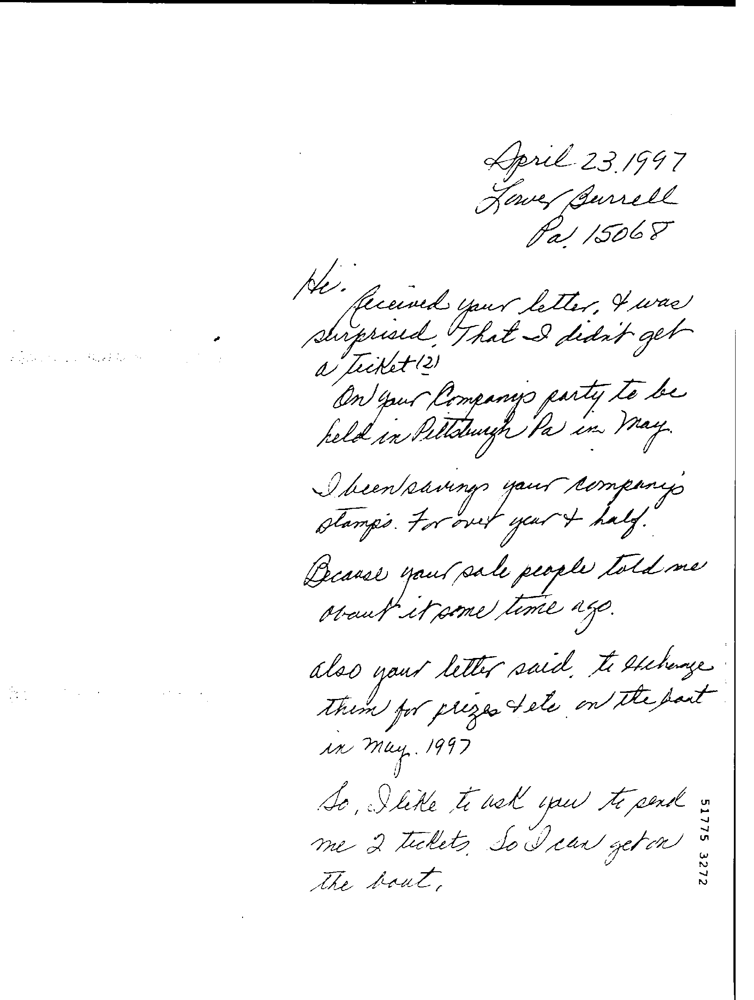 April 23.1997
Lower Burrell
Pa. 15068
Hi.
Received your letter, & was
surprised. That I didn't get
a ticket (2)
On your Company's party to be
held in Pittsburgh Pa in May.
I been savings your company's
stamp's. For over year & half.
Because your sale people told me
about it some time ago.
also your letter said, to exchange
them for prizes & etc on the boat
in may. 1997
So, I like to ask you to send
me 2 tickets. So I can get on
the boat.
51775 3272